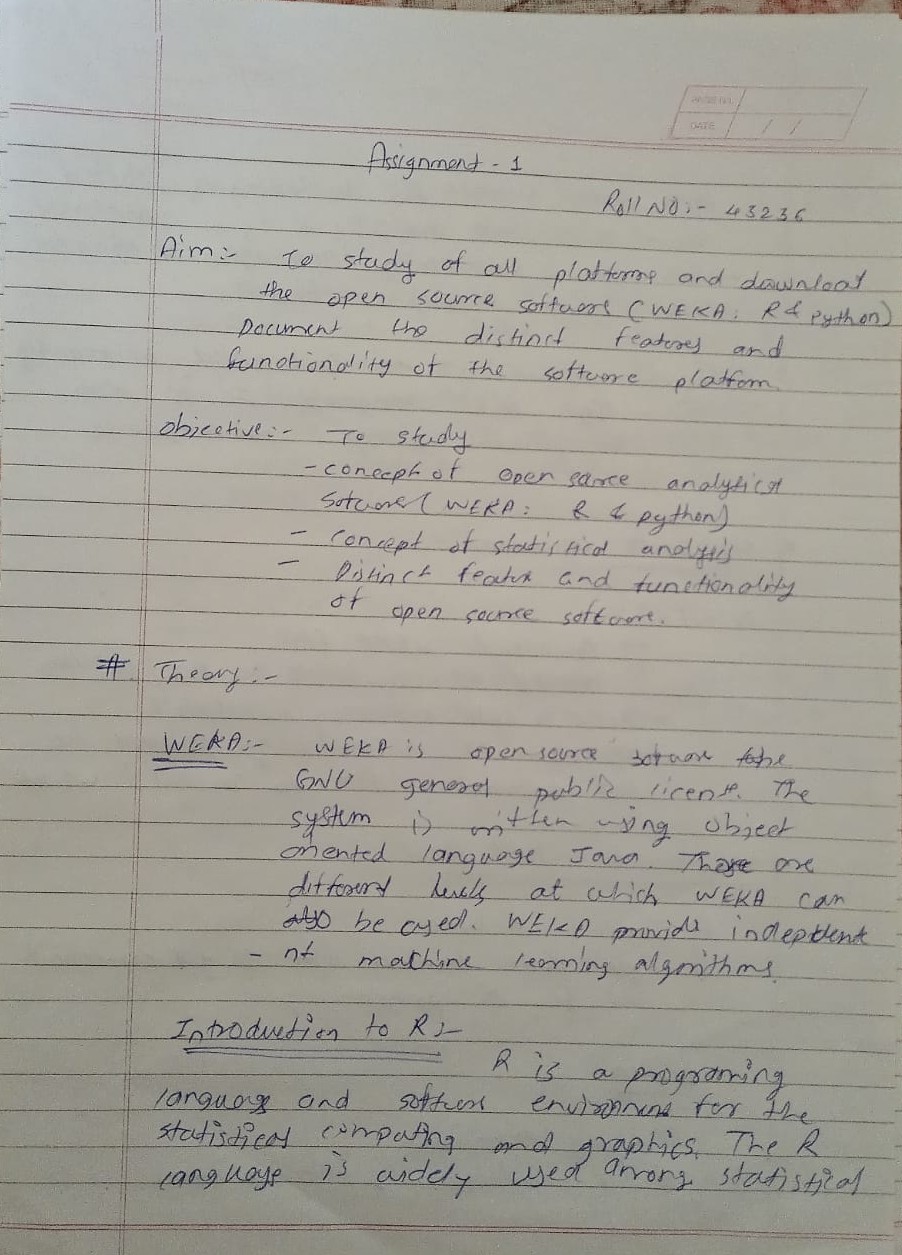 PAGE NO.
DATE / /
Assignment - 1
Roll NO :- 43236
Aim :- To study of all platforms and download
the open source software (WEKA, R & python)
Document the distinct features and
functionality of the software platfom.
objective :- To study
- concept of open sarce analytical
Sotware (WEKA: R & python)
- Concept of statistical analysis
- Distinct featur and functionality
of open source software.
# Theory :-
WEKA :- WEKA is open source sotware
GNU general public license. The
system is written using object
oriented language Java. There are
different levels at which WEKA can
also be used. WEKA provide indepdent
- nt machine learning algorithms.
Introduction to R :-
R is a programing
language and software environment for the
statistical computing and graphics. The R
language is widely used among statistical